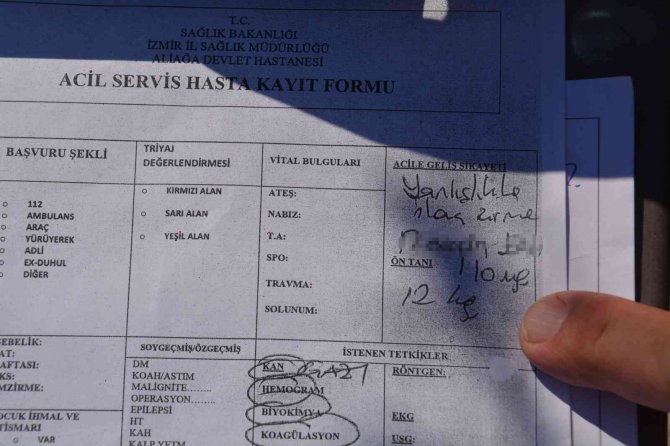 T.C.
SAĞLIK BAKANLIĞI
İZMİR İL SAĞLIK MÜDÜRLÜĞÜ
ALİAĞA DEVLET HASTANESİ
ACİL SERVİS HASTA KAYIT FORMU
BAŞVURU ŞEKLİ
112
AMBULANS
ARAÇ
YÜRÜYEREK
ADLİ
EX-DUHUL
DİĞER
TRİYAJ
DEĞERLENDİRMESİ
KIRMIZI ALAN
SARI ALAN
YEŞİL ALAN
VİTAL BULGULARI
ATEŞ:
NABIZ:
T.A:
SPO:
TRAVMA:
SOLUNUM:
ACİLE GELİŞ ŞİKAYETİ
Yanlışlıkla
ilaç
ÖN TANI
110
12 kg
EBELİK:
AT:
HAFTASI:
KS:
MZİRME:
OCUK İHMAL VE
TİSMARI
VAR
SOYGEÇMİŞ/ÖZGEÇMİŞ
DM
KOAH/ASTIM
MALİGNİTE........
OPERASYON......
EPİLEPSİ
HT
KAH
KALP YETM
İSTENEN TETKİKLER
KAN GAZI
HEMOGRAM
BİYOKİMYA
KOAGÜLASYON
RÖNTGEN:
EKG
USG: